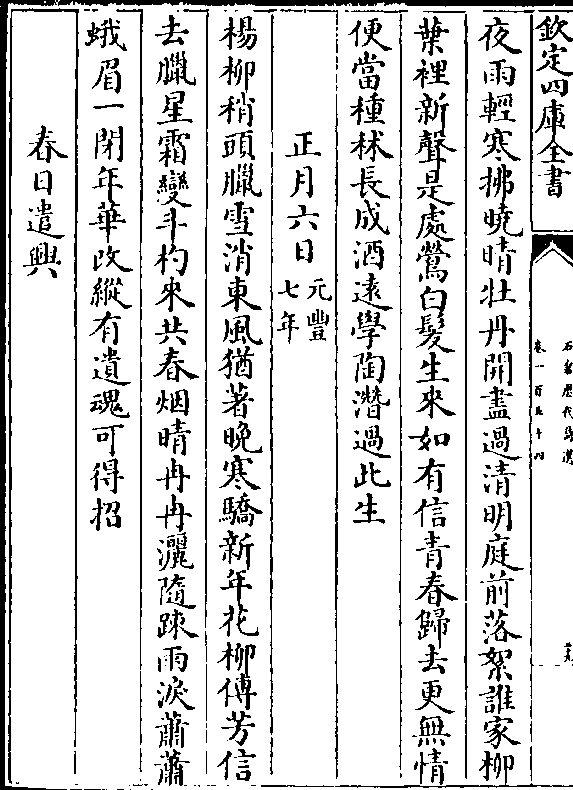 欽定四庫全書
石倉歷代詩選
卷一百五十四
夜雨輕寒拂曉晴牡丹開盡過清明庭前落絮誰家柳
葉裡新聲是處鶯白髮生來如有信青春歸去更無情
便當種秫長成酒遠學陶潛過此生
正月六日元豐七年
楊柳稍頭臘雪消東風猶著晚寒驕新年花柳傅芳信
去臘星霜變斗杓來共春烟晴冉冉灑隨踈雨淚蕭蕭
蛾眉一閉年華改縱有遺魂可得招
春日遣興